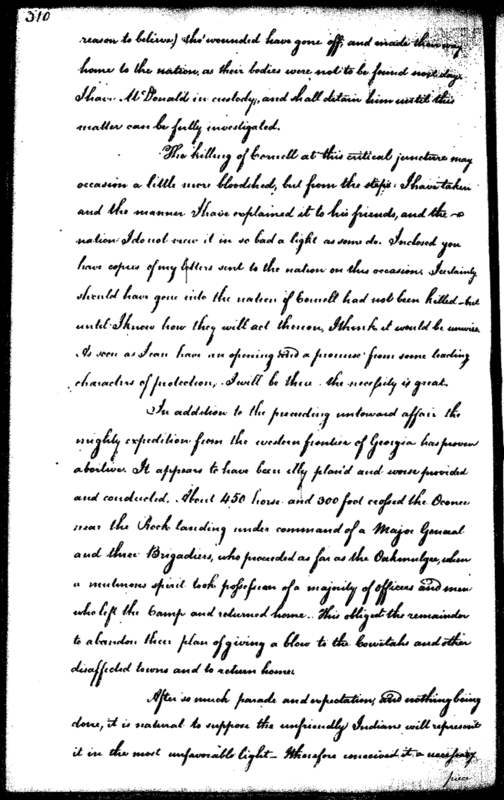 310
reason to believe) tho' wounded have gone off, and made their way
home to the nation, as their bodies were not to be found next day.
I have McDonald in custody, and shall detain him until this
matter can be fully investigated.
The killing of Cornell at this critical juncture may
occasion a little more bloodshed, but from the steps I have taken
and the manner I have explained it to his friends, and the
nation I do not view it in so bad a light as some do. Inclosed you
have copies of my letters sent to the nation on this occasion. I certainly
should have gone into the nation if Cornell had not been killed – but
until I know how they will act thereon, I think it would be unwise.
As soon as I can have an opening and a promise from some leading
characters of protection, I will be there. the necessity is great.
In addition to the preceding untoward affair the
mighty expedition from the western frontier of Georgia has proven
abortive. It appears to have been illy plan'd and worse provided
and conducted. About 450 horse and 300 foot crossed the Oconee
near the Rock landing under command of a Major General
and three Brigadiers, who proceeded as far as the Oakmulgee, when
a mutinous spirit took possession of a majority of officers and men
who left the Camp and returned home. This obliged the remainder
to abandon their plan of giving a blow to the Cowetahs and other
disaffected towns and to return home.
After so much parade and expectation, and nothing being
done, it is natural to suppose the unfriendly Indians will represent
it in the most unfavorable light – I therefore conceived it a necessary
piece